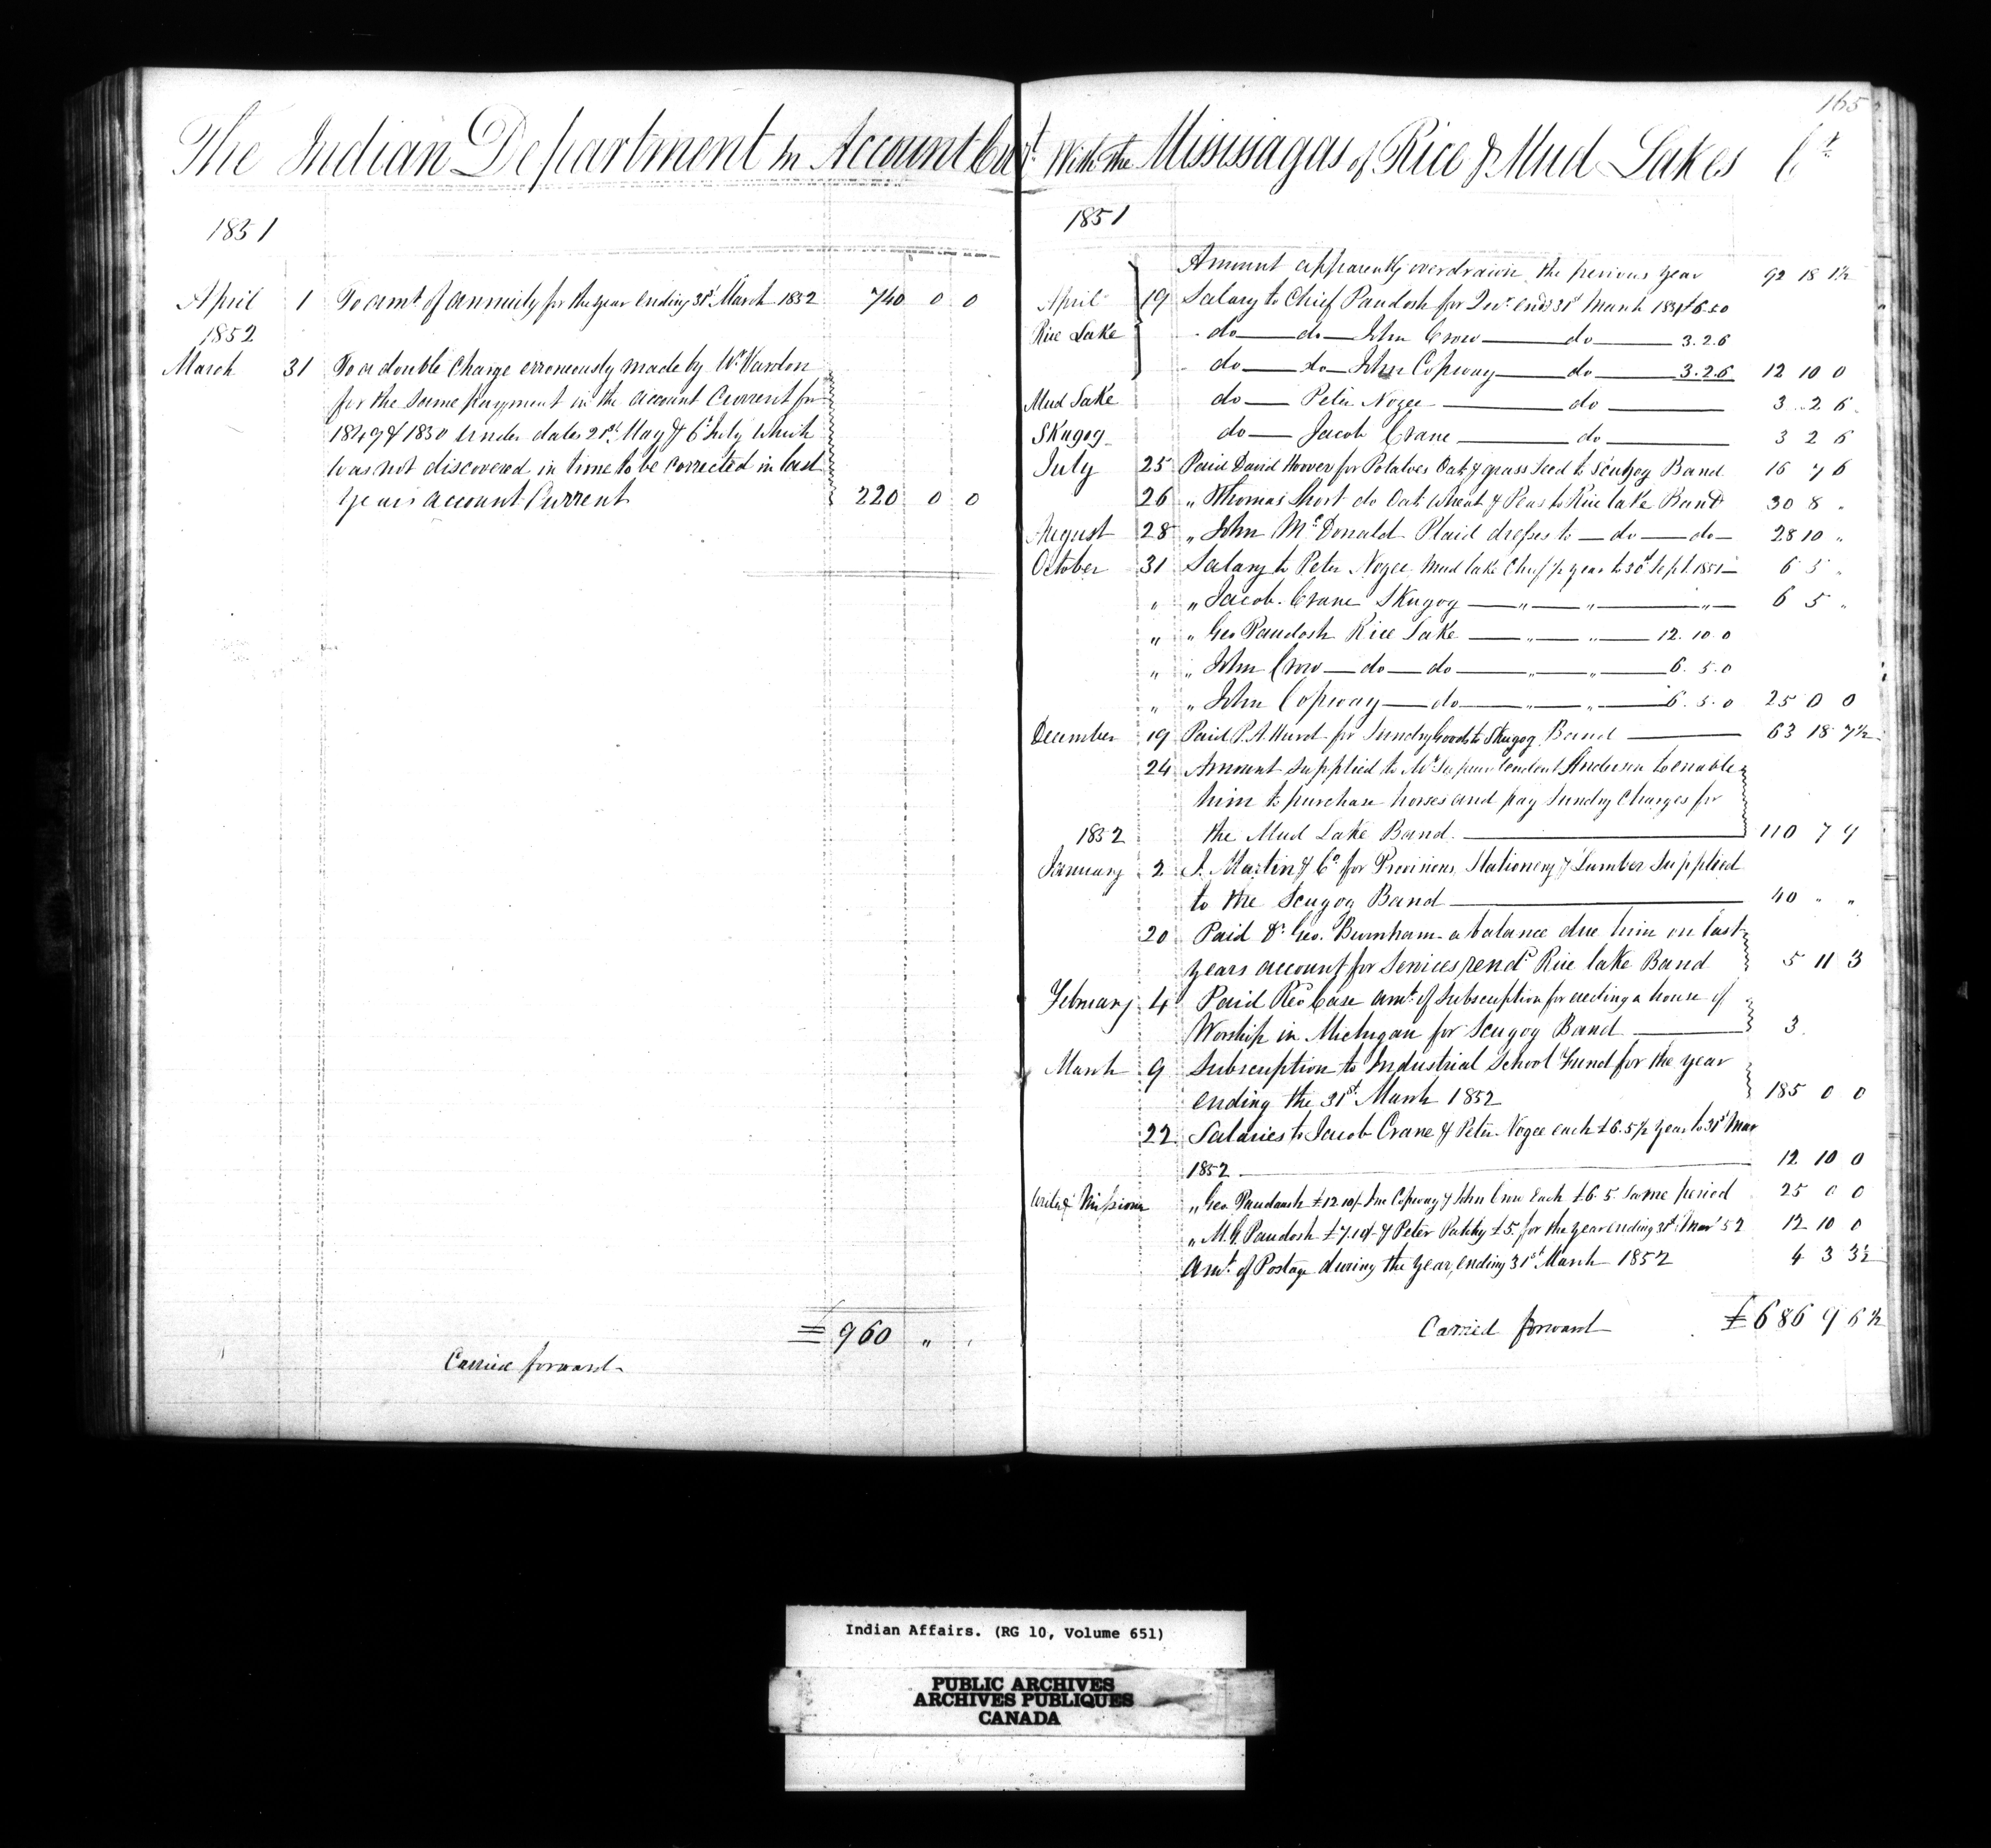 165
The Indian Department In Account Curt. With the Mississagas of Rice & Mud Lakes Cr.
1851
April 1 To amt. of annuity for the year ending 31st March 1852 740 0 0
1852
March 31 To a double Charge erroneously made by Mr. Vardon
for the same payment in the account Current for
1849 & 1850 under dates 21st May & 6th July which
was not discovered in time to be corrected in last
years account Current 220 0 0
£960 " "
Carried forward
1851
Amount apparently overdrawn the previous year 92 18 1½
April 19 Salary to Chief Paudosh for Qur. endg 31st March 1851 £6.5.0
Rice Lake do do John Crow do 3.2.6
do do John Copway do 3.2.6 12 10 0
Mud Lake do Peter Nogee do 3 2 6
Skugog do Jacob Crane do 3 2 6
July 25 Paid David Hoover for Potatoes Oats & grass Seed to Scugog Band 16 7 6
26 " Thomas Short do Oats Wheat & Peas to Rice lake Band 30 8 "
August 28 " John McDonald Plaid dresses to do do 28 10 "
October 31 Salary to Peter Nogee Mud lake Chief ½ year to 30th Sept. 1851 6 5 "
" " Jacob Crane Skugog " " " 6 5 "
" " Geo Paudosh Rice Lake " " 12. 10. 0
" " John Crow do do " " 6. 5. 0
" " John Copway do " " 6. 5. 0 25 0 0
December 19 Paid P. A. Hurd for Sundry Goods to Skugog Band 63 18 7½
24 Amount supplied to Mr. Superintendent Anderson to enable
him to purchase horses and pay Sundry Charges for
1852 the Mud Lake Band 110 7 9
January 2 J. Martin & Co. for Provisions, Stationery & Lumber Supplied
to the Scugog Band 40 " "
20 Paid Dr. Geo. Burnham a balance due him on last
years account for Services rend. Rice lake Band 5 11 3
February 4 Paid Revd Case amt. of Subscription for erecting a house of
Worship in Michigan for Scugog Band 3
March 9 Subscription to Industrial School Fund for the year
ending the 31st March 1852 185 0 0
22 Salaries to Jacob Crane & Peter Nogee each £6.5 ½ year to 31st Mar
1852 12 10 0
" Geo Paudaush £12.10/- Jno Copway & John Crow Each £6.5. same period 25 0 0
" M. G. Paudosh £7.10/- & Peter £5. for the year ending 31st Mar' 52 12 10 0
Amt. of Postage during the year, ending 31st March 1852 4 3 3½
Carried forward £686 9 6½
Indian Affairs. (RG 10, Volume 651)
PUBLIC ARCHIVES
ARCHIVES PUBLIQUES
CANADA